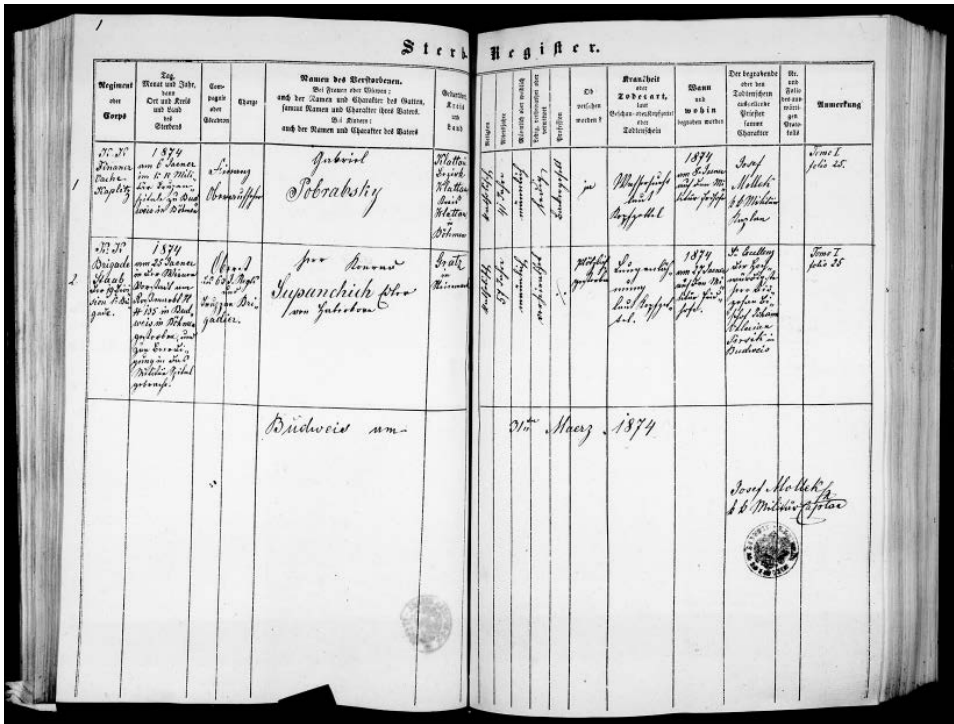 1
Sterb- Register.
Regiment
oder
Corps
Tag,
Monat und Jahr,
dann
Ort und Kreis
und Land
des
Sterbens
Com-
pagnie
oder
Escadron
Charge
Namen des Verstorbenen.
Bei Frauen oder Witwen:
auch der Namen und Charakter des Gatten,
sammt Namen und Charakter ihres Vaters.
Bei Kindern:
auch der Namen und Charakter des Vaters
Geburtsort,
Kreis
und
Land
Religion
Altersjahre
Männlich oder weiblich
Ledig, verheirathet oder
verwitwet
Profession
Ob
versehen
worden?
Krankheit
oder
Todesart,
laut
Beschau- oder Kopfzettel
oder
Todtenschein
Wann
und
wohin
begraben worden
Der begrabende
oder den
Todtenschein
ausstellende
Priester
sammt
Charakter
Nr.
und Folio
des aus-
wärti-
gen
Proto-
kolls
Anmerkung
1
K. K.
Finanz
Wache
Kaplitz
1874
am 6 Jaener
in k. k. Mili-
tär Truppen
spitale zu Bud
weis in Böhmen
Oberaufseher
Gabriel
Pobrabsky
Klattau
Bezirk
Klattau
Kreis
Klattau
Böhmen
41 Jahre
männlich
ja
Wassersucht
laut
Kopfzettel
1874
am 8 Jaener
auf dem Mi-
litär Friedhofe
Josef
Mollek
k k Militär
Kaplan
Tomo I
folio 25.
2
K. K.
Brigade
Staab
1874
am 25 Jaener
in der Wiener
Vorstadt am
# 135 in Bud
weis in Böhmen
gestorben, und
zur Beerdi-
gung in das
Militär Spital
gebracht.
Oberst
und
Truppen Bri-
gadier.
Herr Konrad
Supanchich Edler
von Haberkorn
Gratz
in
Steiermark
57 Jahre
männlich
verheirathet
plötzlich
gestorben
Lungenläh
mung
laut Kopfzet-
tel.
1874
am 27 Jaener
auf dem Mi-
litär Fried-
hofe.
Sr Excellenz
der Hoch-
würdigste
Herr Diö-
zesan Bi-
schof Johann
Valerian
Jirsik in
Budweis
Tomo I
folio 25
Budweis am 31ten Maerz 1874
Josef Mollek
k k Militär Caplan